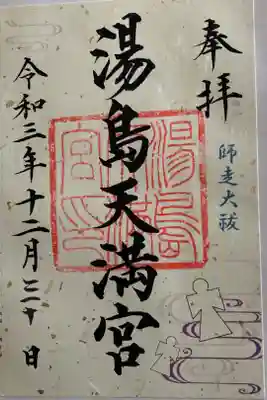 奉拝
師走大祓
湯島天満宮
令和三年十二月三十日
湯島天満宮印